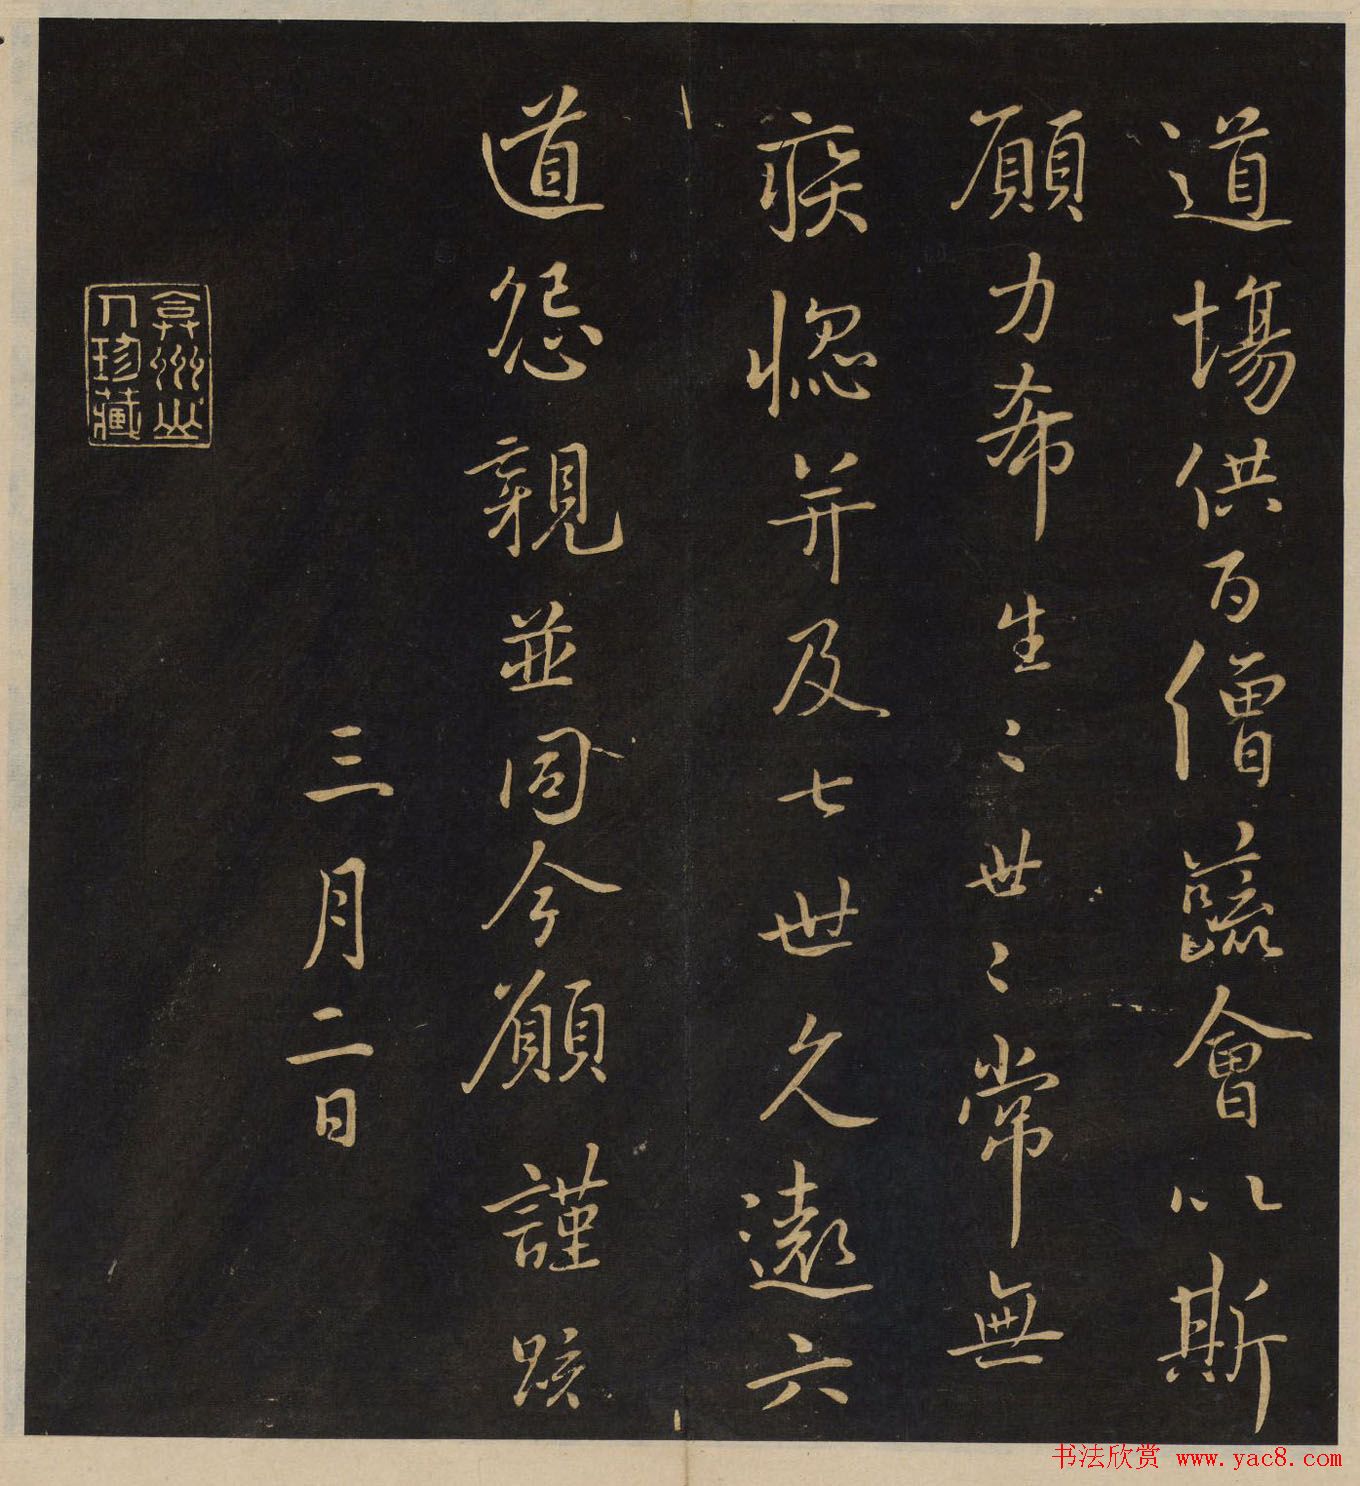 道場供百僧蔬會以斯
願力希生〻世〻常無
疾惱并及七世久遠六
道怨親並同今願謹疏
三月二日
弇州山
人珍藏
书法欣赏 www.yac8.com